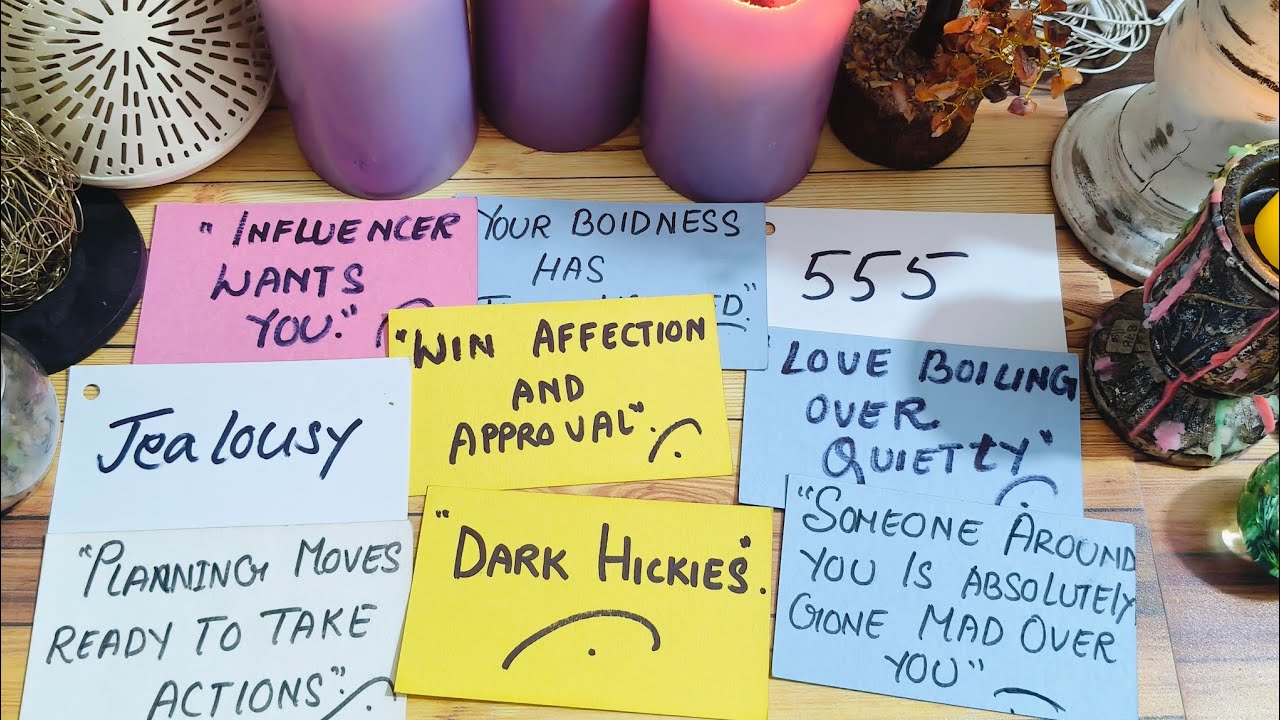 "INFLUENCER
WANTS
YOU."
YOUR BOIDNESS
HAS
555
"WIN AFFECTION
AND
APPROVAL".
LOVE BOILING
OVER
QUIETLY"
Jealousy
"PLANNING MOVES
READY TO TAKE
ACTIONS".
"DARK HICKIES".
"SOMEONE AROUND
YOU IS ABSOLUTELY
GONE MAD OVER
YOU"